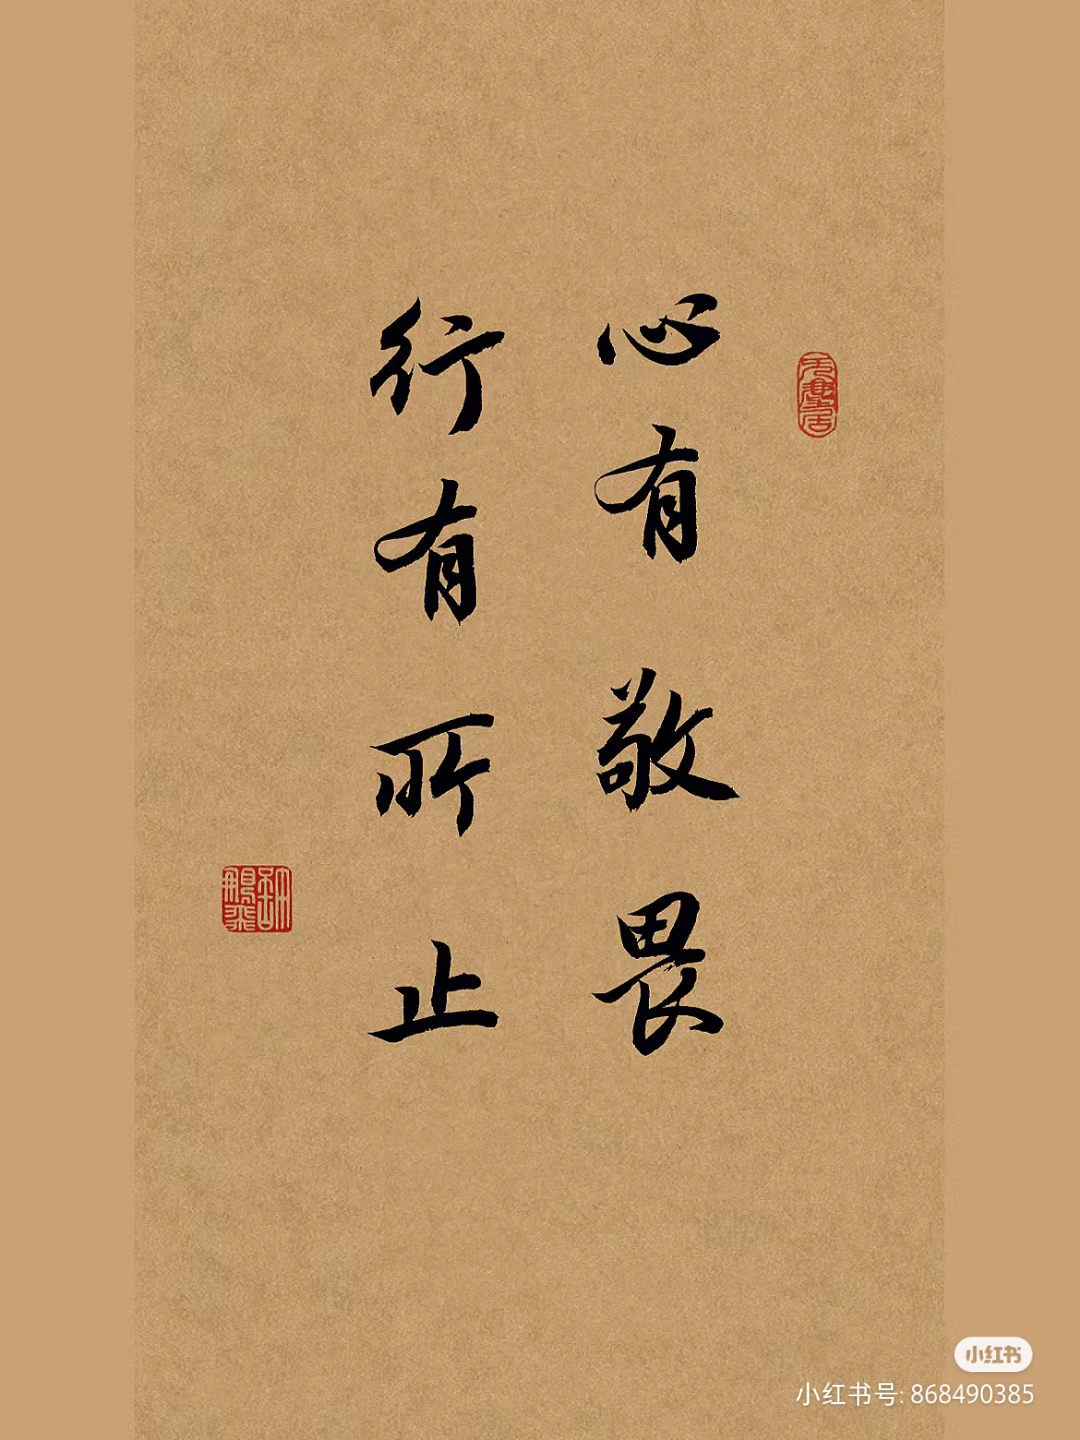 心有敬畏
行有所止
小红书
小红书号: 868490385